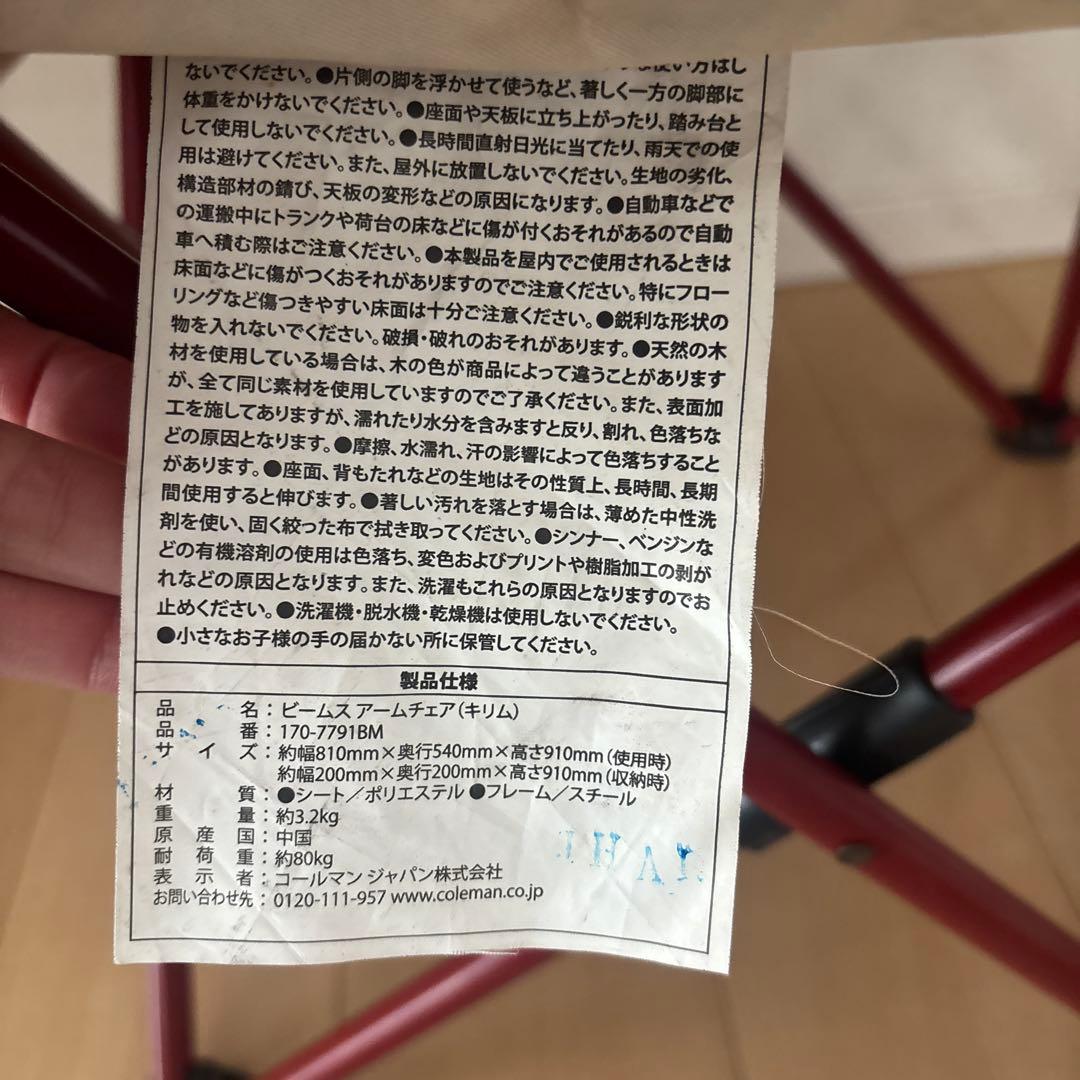 な使い方はし
ないでください。●片側の脚を浮かせて使うなど、著しく一方の脚部に
体重をかけないでください。●座面や天板に立ち上がったり、踏み台と
して使用しないでください。●長時間直射日光に当てたり、雨天での使
用は避けてください。また、屋外に放置しないでください。生地の劣化、
構造部材の錆び、天板の変形などの原因になります。●自動車などで
の運搬中にトランクや荷台の床などに傷が付くおそれがあるので自動
車へ積む際はご注意ください。●本製品を屋内でご使用されるときは
床面などに傷がつくおそれがありますのでご注意ください。特にフロー
リングなど傷つきやすい床面は十分ご注意ください。●鋭利な形状の
物を入れないでください。破損・破れのおそれがあります。●天然の木
材を使用している場合は、木の色が商品によって違うことがあります
が、全て同じ素材を使用していますのでご了承ください。また、表面加
工を施してありますが、濡れたり水分を含みますと反り、割れ、色落ちな
どの原因となります。●摩擦、水濡れ、汗の影響によって色落ちすること
があります。●座面、背もたれなどの生地はその性質上、長時間、長期
間使用すると伸びます。●著しい汚れを落とす場合は、薄めた中性洗
剤を使い、固く絞った布で拭き取ってください。●シンナー、ベンジンな
どの有機溶剤の使用は色落ち、変色およびプリントや樹脂加工の剥が
れなどの原因となります。また、洗濯もこれらの原因となりますのでお
止めください。●洗濯機・脱水機・乾燥機は使用しないでください。
●小さなお子様の手の届かない所に保管してください。
製品仕様
品名：ビームス アームチェア（キリム）
品番：170-7791BM
サイズ：約幅810mm×奥行540mm×高さ910mm（使用時）
約幅200mm×奥行200mm×高さ910mm（収納時）
材質：●シート／ポリエステル ●フレーム／スチール
重量：約3.2kg
原産国：中国
耐荷重：約80kg
表示者：コールマン ジャパン株式会社
お問い合わせ先：0120-111-957 www.coleman.co.jp